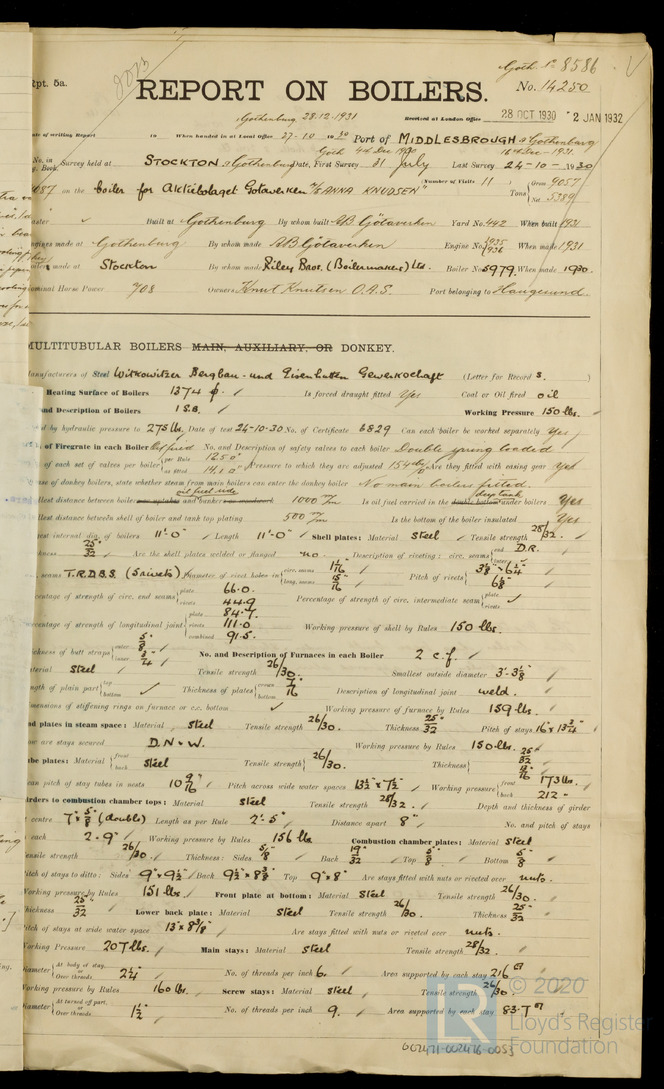 Goth. No 8586
Rpt. 5a.
REPORT ON BOILERS.
No. 14250
Gothenburg 28-12-1931
Received at London Office 28 OCT 1930 2 JAN 1932
of writing Report When handed in at Local Office 27-10-1930 Port of MIDDLESBROUGH & Gothenburg
No. in Survey held at STOCKTON & Gothenburg Date, First Survey 31 July Last Survey 24-10-1930
on the boiler for Aktiebolaget Götaverken "ANNA KNUDSEN" Number of Visits 11 Tons Gross 9057 Net 5389
Built at Gothenburg By whom built AB Götaverken Yard No. 442 When built 1931
made at Gothenburg By whom made AB Götaverken Engine No. 935 936 When made 1931
made at Stockton By whom made Riley Bros. (Boilermakers) Ltd. Boiler No. 5979 When made 1930.
Nominal Horse Power 708 Owners Knut Knutsen O.A.S. Port belonging to Haugesund
MULTITUBULAR BOILERS MAIN, AUXILIARY, OR DONKEY.
Manufacturers of Steel Witkowitzer Bergbau- und Eisenhutten Gewerkschaft (Letter for Record S.)
Heating Surface of Boilers 1374 Is forced draught fitted Yes Coal or Oil fired oil
and Description of Boilers 1 S.B. Working Pressure 150 lbs.
by hydraulic pressure to 275 lbs. Date of test 24-10-30 No. of Certificate 6829 Can each boiler be worked separately Yes
of Firegrate in each Boiler Oil fired No. and Description of safety valves to each boiler Double spring loaded
of each set of valves per boiler per Rule 12.50 as fitted 14.10 Pressure to which they are adjusted 154 Are they fitted with easing gear Yes
of donkey boilers, state whether steam from main boilers can enter the donkey boiler No main boilers fitted.
oil fuel side
deep tank
distance between boilers or uptakes and bunkers or woodwork 1000 m/m Is oil fuel carried in the double bottom under boilers Yes
distance between shell of boiler and tank top plating 500 m/m Is the bottom of the boiler insulated Yes
internal dia. of boilers 11'-0" Length 11'-0" Shell plates: Material Steel Tensile strength 28/32.
25/32 Are the shell plates welded or flanged no. Description of riveting: circ. seams end D.R.
seams T.R.D.B.S. (5 rivets) Diameter of rivet holes in circ. seams 1 1/16 long. seams 15/16 Pitch of rivets 3 1/8" 6 1/4" 6 1/8"
Percentage of strength of circ. end seams plate 66.0 rivets 44.9 Percentage of strength of circ. intermediate seam plate rivets
Percentage of strength of longitudinal joint plate 84.7 rivets 111.0 combined 91.5 Working pressure of shell by Rules 150 lbs.
Thickness of butt straps outer 5/8 inner 3/4 No. and Description of Furnaces in each Boiler 2 c.f.
Material Steel Tensile strength 26/30. Smallest outside diameter 3'-3 1/8"
Length of plain part top bottom Thickness of plates crown bottom 7/16 Description of longitudinal joint weld.
Dimensions of stiffening rings on furnace or c.c. bottom Working pressure of furnace by Rules 159 lbs.
End plates in steam space: Material Steel Tensile strength 26/30. Thickness 25/32 Pitch of stays 16" x 13 3/4"
How are stays secured D.N & W. Working pressure by Rules 150 lbs.
Tube plates: Material front back Steel Tensile strength 26/30. Thickness 25/32 13/16
Mean pitch of stay tubes in nests 10 9/16 Pitch across wide water spaces 13 1/2" x 7 1/2" Working pressure front 173 lbs. back 212
Girders to combustion chamber tops: Material Steel Tensile strength 28/32. Depth and thickness of girder
centre 7" x 5/8" (double) Length as per Rule 2'-5" Distance apart 8" No. and pitch of stays
each 2-9" Working pressure by Rules 156 lbs Combustion chamber plates: Material Steel
Tensile strength 26/30. Thickness: Sides 5/8 Back 19/32 Top 5/8 Bottom 5/8
Pitch of stays to ditto: Sides 9" x 9 1/2" Back 9 1/2" x 8 3/8" Top 9" x 8" Are stays fitted with nuts or riveted over nuts.
Working pressure by Rules 151 lbs. Front plate at bottom: Material Steel Tensile strength 26/30.
Thickness 25/32 Lower back plate: Material Steel Tensile strength 26/30. Thickness 25/32
Pitch of stays at wide water space 13" x 8 3/8" Are stays fitted with nuts or riveted over nuts.
Working Pressure 207 lbs. Main stays: Material Steel Tensile strength 28/32.
Diameter At body of stay, or Over threads 2 1/4" No. of threads per inch 6. Area supported by each stay 216
Working pressure by Rules 160 lbs. Screw stays: Material Steel Tensile strength 26/30.
Diameter At turned off part, or Over threads 1 1/2 No. of threads per inch 9. Area supported by each stay 83.7
© 2020
Lloyd's Register
Foundation
LR
002471-002476-0053